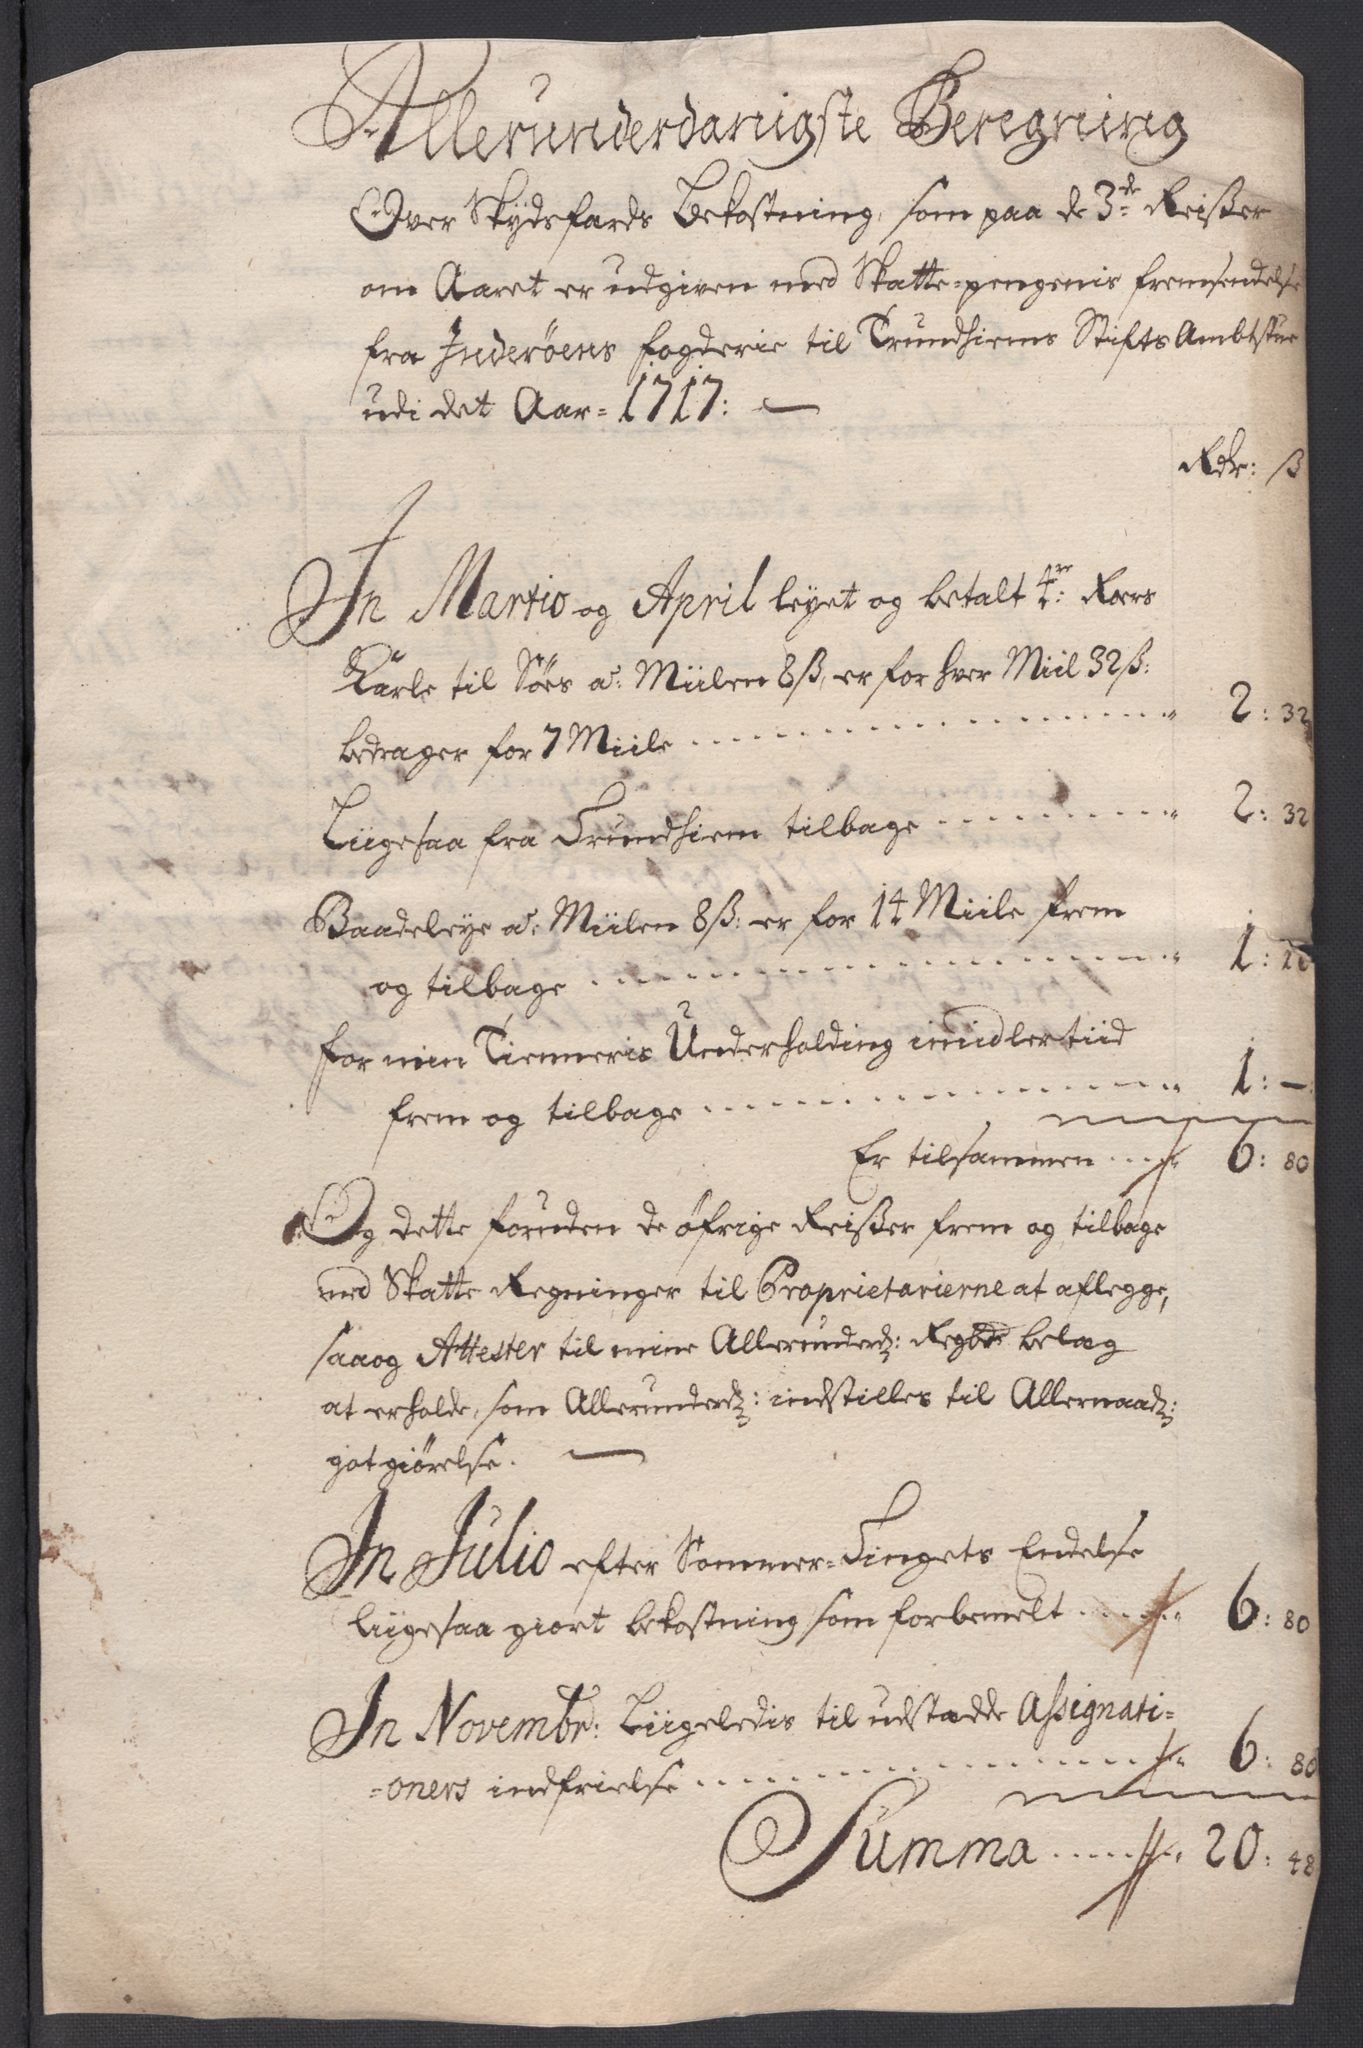 Allerunderdanigste Beregning
Over Skydsfærds Bekostning, som paa de 3de Reißer
om Aaret er udgiven med Skatte-pengenis fremsendelse
fra Inderöens fogderie til Trundhiems Stifts Ambtstue
udi det Aar= 1717:
Rdr: ß
In Martio og April leyet og betalt 4re: Roers
Karle til Söes a: Miilen 8ß, er for hver Miil 32ß:
bedrager for 7 Miile 2: 32
Liigesaa fra Trundhiem tilbage 2: 32
Baadeleye a: Miilen 8ß: er for 14 Miile frem
og tilbage 1:
for min Tienneris Underholding imidlertiid
frem og tilbage 1: —
Er tilsammen 6: 80
Og dette foruden de öfrige Reißer frem og tilbage
med Skatte Regninger til Proprietarierne at aflegge,
saaog Attester til mine Allerunderd: belæg
at erholde, som Allerunderd: indstilles til Allernaad:
gotgiörelse.
In Julio efter Sommer-Tingets Endelse
liigesaa giort bekostning som forbemelt 6: 80
In Novembr: Liigeledis til udstædde Assignati=
=oners indfrielse 6: 80
Summa 20: 48